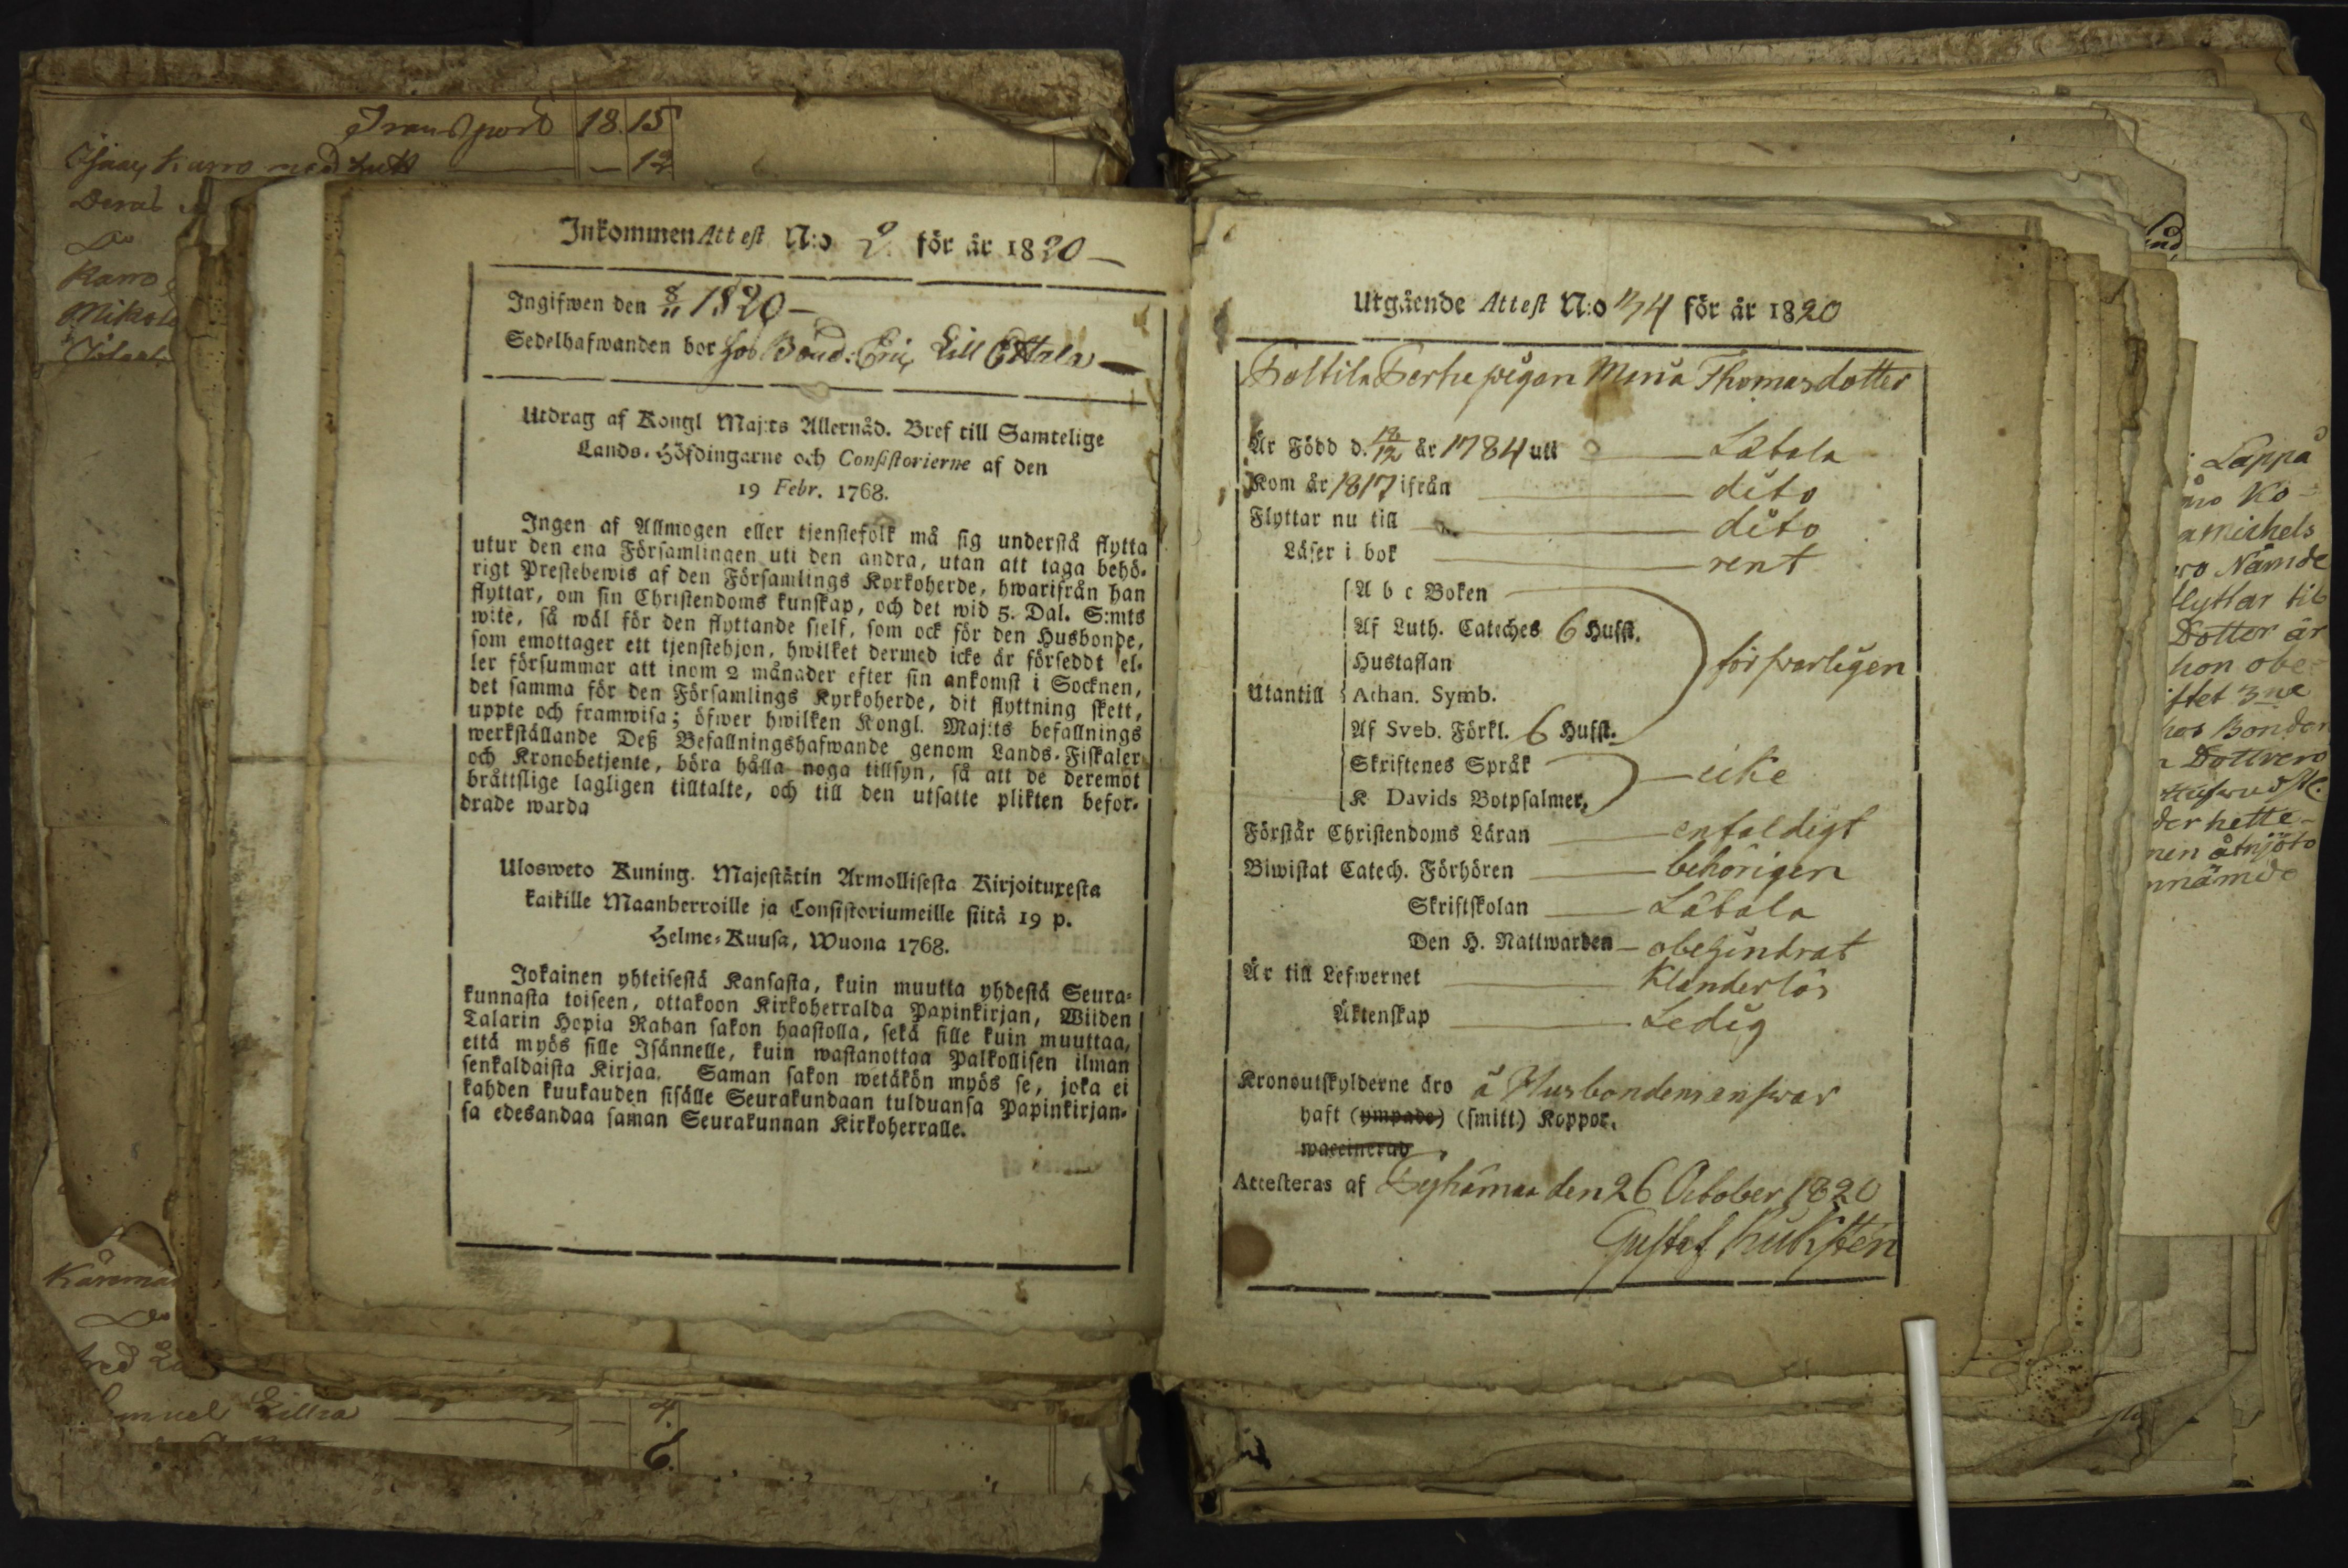 Transport 18.15
Isaac Karro med hust — 12
Karro
Inkommen Attest N:o 2. för år 1820 —
Ingifwen den 8/11 1820 —
Sedelhafwanden bor hos Bond: Eric Lill Ettala —
Utdrag af Kongl Maj:ts Allernåd. Bref till Samtelige
Lands-Höfdingarne och Consistorierne af den
19 Febr. 1768.
Ingen af Allmogen eller tjenstefolk må sig understå flytta
utur den ena Församlingen uti den andra, utan att taga behö-
rigt Prestebewis af den Församlings Kyrkoherde, hwarifrån han
flyttar, om sin Christendoms kunskap, och det wid 5. Dal. S:mts
wite, så wäl för den flyttande sjelf, som ock för den Husbonde,
som emottager ett tjenstehjon, hwilket dermed icke är försedt el-
ler försummar att inom 2 månader efter sin ankomst i Socknen,
det samma för den Församlings Kyrkoherde, dit flyttning skett,
uppte och framwisa; öfwer hwilken Kongl. Maj:ts befallnings
werkställande Deß Befallningshafwande genom Lands-Fiskaler
och Kronobetjente, böra hålla noga tillsyn, så att de deremot
bråttslige lagligen tilltalte, och till den utsatte plikten befor-
drade warda
Ulosweto Kuning. Majestätin Armollisesta Kirjoituxesta
kaikille Maanherroille ja Consistoriumeille siitä 19 p.
Helme-Kuusa, Wuona 1768.
Jokainen yhteisestä Kansasta, kuin muutta yhdestä Seura-
kunnasta toiseen, ottakoon Kirkoherralda Papinkirjan, Wiiden
Talarin Hopia Rahan sakon haastolla, sekä sille kuin muuttaa,
että myös sille Isännelle, kuin wastanottaa Palkollisen ilman
senkaldaista Kirjaa. Saman sakon wetäkön myös se, joka ei
kahden kuukauden sisälle Seurakundaan tulduansa Papinkirjan-
sa edesandaa saman Seurakunnan Kirkoherralle.
4.
6.
Utgående Attest N:o 74 för år 1820
Poltila Perhe pigan Maria Thomasdotter
Är Född d. 18/12 år 1784 uti — Låkala
Kom år 1817 ifrån — dito
Flyttar nu till — dito
Läser i bok — rent
A b c Boken
Af Luth. Cateches 6 Hufst.
Hustaflan försvarligen
Utantill Athan. Symb.
Af Sveb. Förkl. 6 Hufst.
Skriftenes Språk — icke
K Davids Botpsalmer,
Förstår Christendoms Läran — enfaldigt
Biwistat Catech. Förhören — behörigen
Skriftskolan — Låkala
Den H. Nattwarden — obehindrat
Är till Lefwernet — Klanderlös
Äktenskap — Ledig
Kronoutskylderne äro å Husbondens ansvar
haft (ympade) (smitt.) Koppor.
waccinerad
Attesteras af Pyhämaa den 26 October 1820
Gustaf
Lappå
Ko-
Michels
Nämde
flyttar til
Dotter är
hon obe-
hos Bonden
hette-
åtnjöto